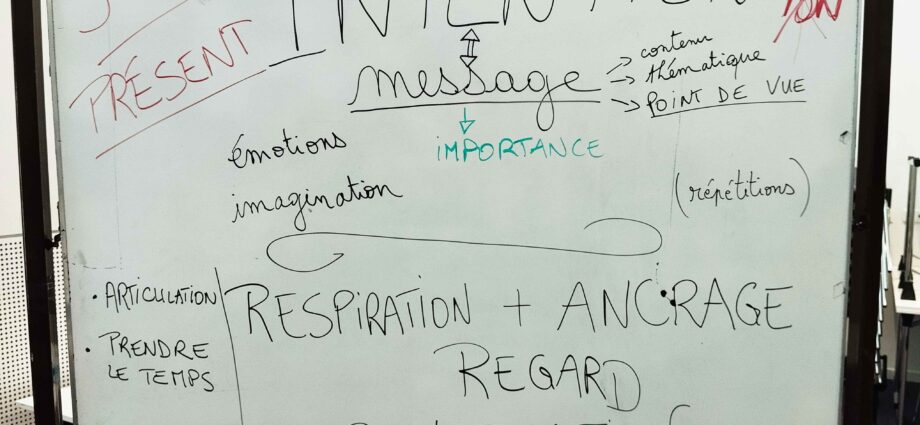 INTENTION
ON
PRÉSENT
message
→ contenu
→ thématique
→ POINT DE VUE
IMPORTANCE
émotions
imagination
(répétitions)
• ARTICULATION
• PRENDRE
LE TEMPS
RESPIRATION + ANCRAGE
REGARD